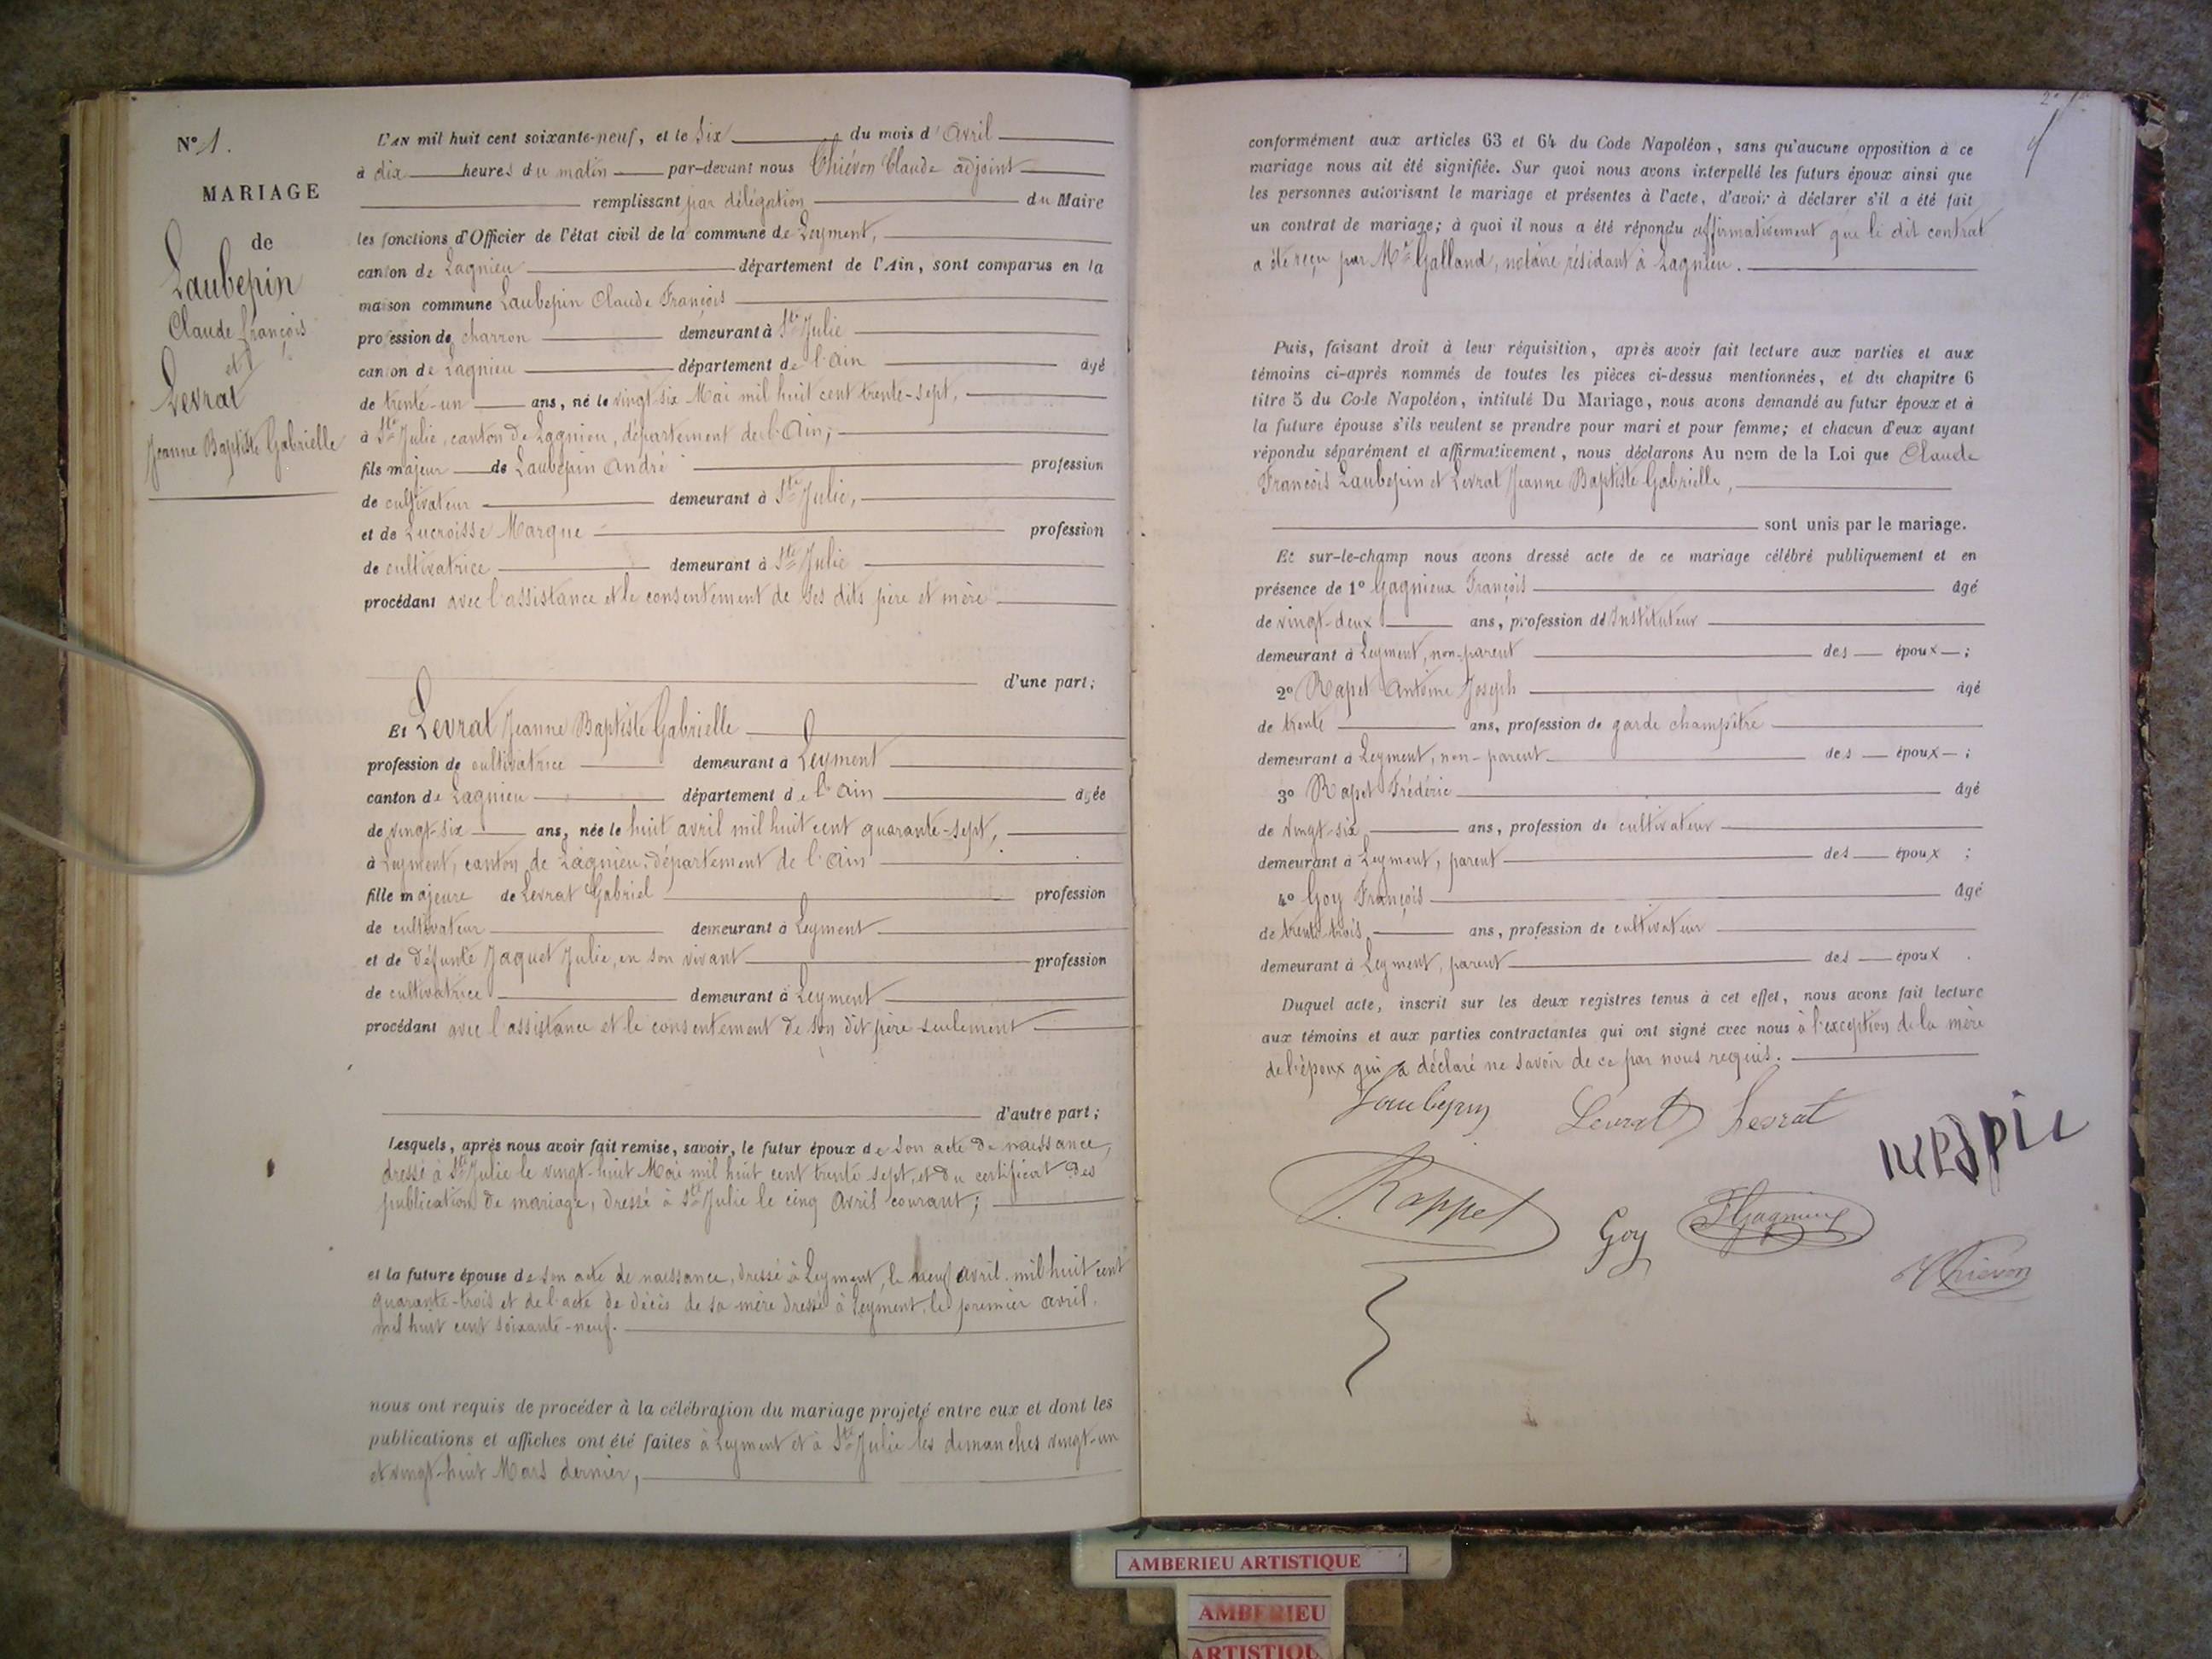 N° 1.
MARIAGE
de
Laubepin
Claude François
et
Levrat
Jeanne Baptiste Gabrielle
L'AN mil huit cent soixante-neuf, et le Six du mois d'Avril
à dix heures du matin par-devant nous Chiévon Claude adjoint
remplissant par délégation du Maire
les fonctions d'Officier de l'état civil de la commune de Leyment,
canton de Lagnieu département de l'Ain, sont comparus en la
maison commune Laubepin Claude François
profession de charron demeurant à Ste Julie
canton de Lagnieu département de l'Ain âgé
de trente-un ans, né le vingt-six Mai mil huit cent trente-sept,
à Ste Julie, canton de Lagnieu, département de l'Ain;
fils majeur de Laubepin André profession
de cultivateur demeurant à Ste Julie,
et de Lucroisse Marque profession
de cultivatrice demeurant à Ste Julie
procédant avec l'assistance et le consentement de ses dits père et mère
d'une part;
Et Levrat Jeanne Baptiste Gabrielle
profession de cultivatrice demeurant à Leyment
canton de Lagnieu département de l'Ain âgée
de vingt-six ans, née le huit avril mil huit cent quarante-sept,
à Leyment, canton de Lagnieu, département de l'Ain
fille majeure de Levrat Gabriel profession
de cultivateur demeurant à Leyment
et de défunte Jaquet Julie, en son vivant profession
de cultivatrice demeurant à Leyment
procédant avec l'assistance et le consentement de son dit père seulement
d'autre part;
Lesquels, après nous avoir fait remise, savoir, le futur époux de son acte de naissance,
dressé à Ste Julie le vingt-huit Mai mil huit cent trente sept, et du certificat des
publication de mariage, dressé à Ste Julie le cinq Avril courant;
et la future épouse de son acte de naissance, dressé à Leyment, le neuf avril mil huit cent
quarante-trois et de l'acte de décès de sa mère dressé à Leyment, le premier avril
mil huit cent soixante-neuf.
nous ont requis de procéder à la célébration du mariage projeté entre eux et dont les
publications et affiches ont été faites à Leyment et à Ste Julie les dimanches vingt-un
et vingt-huit Mars dernier,
conformément aux articles 63 et 64 du Code Napoléon, sans qu'aucune opposition à ce
mariage nous ait été signifiée. Sur quoi nous avons interpellé les futurs époux ainsi que
les personnes autorisant le mariage et présentes à l'acte, d'avoir à déclarer s'il a été fait
un contrat de mariage; à quoi il nous a été répondu affirmativement que le dit contrat
a été reçu par Me Galland, notaire résidant à Lagnieu.
Puis, faisant droit à leur réquisition, après avoir fait lecture aux parties et aux
témoins ci-après nommés de toutes les pièces ci-dessus mentionnées, et du chapitre 6
titre 5 du Code Napoléon, intitulé Du Mariage, nous avons demandé au futur époux et à
la future épouse s'ils veulent se prendre pour mari et pour femme; et chacun d'eux ayant
répondu séparément et affirmativement, nous déclarons Au nom de la Loi que Claude
François Laubepin et Levrat Jeanne Baptiste Gabrielle,
sont unis par le mariage.
Et sur-le-champ nous avons dressé acte de ce mariage célébré publiquement et en
présence de 1° Gagnieux François âgé
de vingt-deux ans, profession de Instituteur
demeurant à Leyment, non-parent des époux ;
2° Rapet Antoine Joseph âgé
de trente ans, profession de garde champêtre
demeurant à Leyment, non-parent des époux ;
3° Rapet Frédéric âgé
de vingt-six ans, profession de cultivateur
demeurant à Leyment, parent des époux ;
4° Goy François âgé
de trente-trois ans, profession de cultivateur
demeurant à Leyment, parent des époux .
Duquel acte, inscrit sur les deux registres tenus à cet effet, nous avons fait lecture
aux témoins et aux parties contractantes qui ont signé avec nous à l'exception de la mère
de l'époux qui a déclaré ne savoir de ce par nous requis.
Laubepin Levrat Levrat
Rappet Goy FGagnieux
Chiévon
AMBERIEU ARTISTIQUE
AMBERIEU
ARTISTIQU